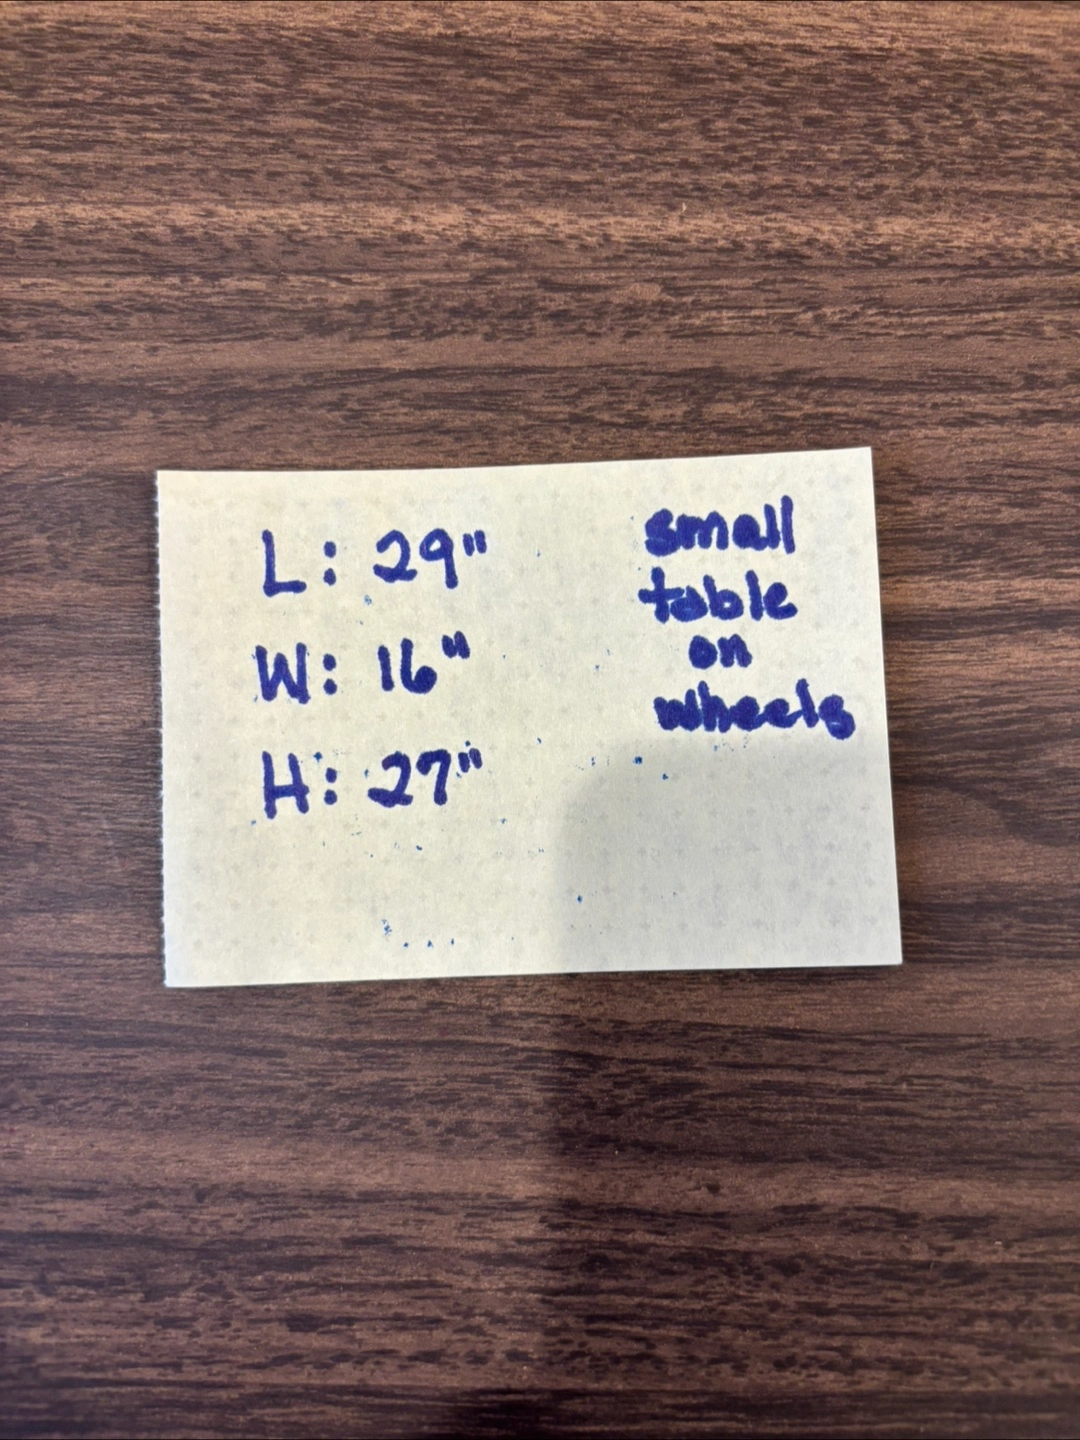 L: 29"
W: 16"
H: 27"
small
table
on
wheels